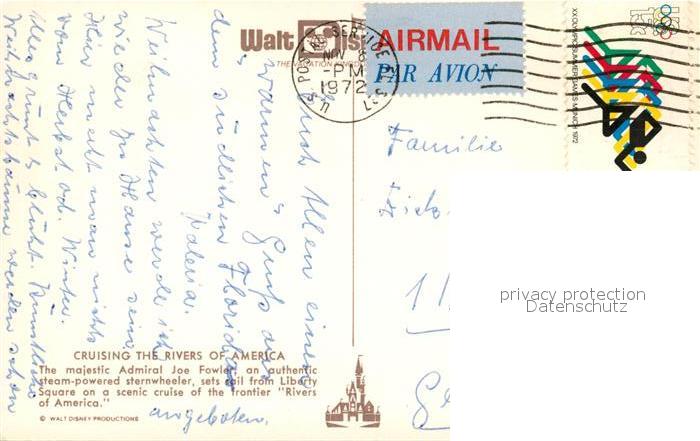 Walt Disney
THE VACATION KINGDOM
U.S. POSTAL SERVICE FL 327
NOV 6
-PM
1972
AIRMAIL
PAR AVION
XX OLYMPIC SUMMER GAMES MUNICH 1972
15c
Euch Allen einen
"warmen" Gruß aus
dem südlichen Florida
Valeria.
Weihnachten werde ich
wieder zu Hause sein
Hier merkt man nichts
vom Herbst od. Winter.
Alles grünt & blüht. Künstliche
Weihnachtsbäume werden schon
angeboten.
Familie
privacy protection
Datenschutz
CRUISING THE RIVERS OF AMERICA
The majestic Admiral Joe Fowler, an authentic
steam-powered sternwheeler, sets sail from Liberty
Square on a scenic cruise of the frontier "Rivers
of America."
© WALT DISNEY PRODUCTIONS